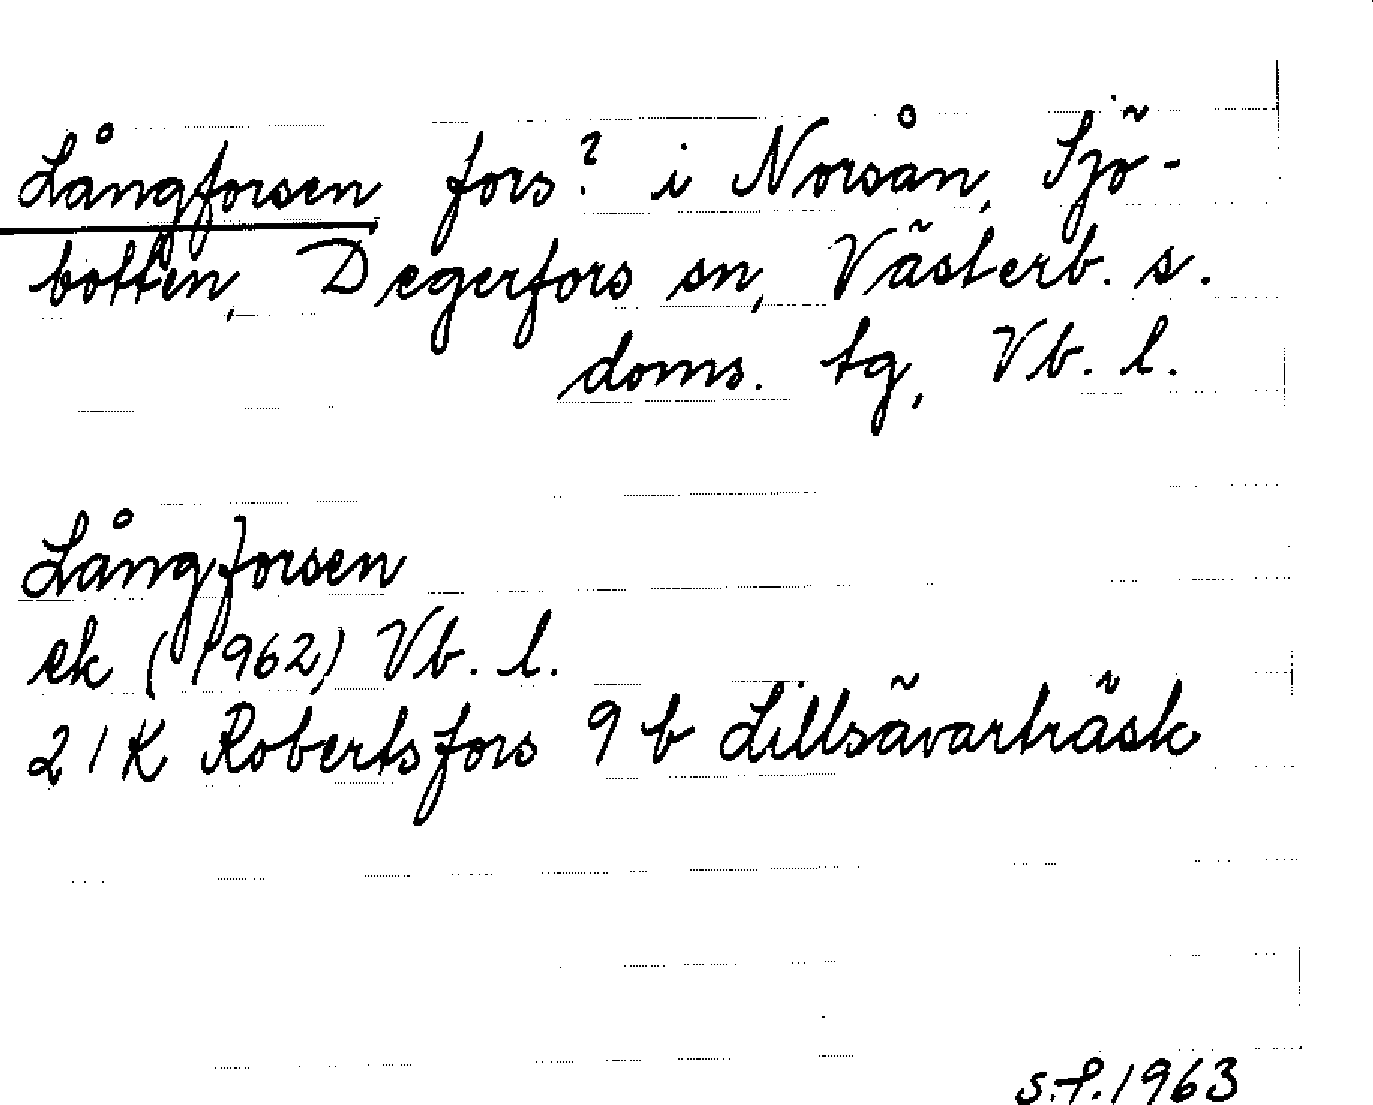 Långforsen fors? i Norsån, Sjö-
botten, Degerfors sn, Västerb. s.
doms. tg, Vb. l.
Långforsen
ek (1962) Vb. l.
21K Robertsfors 9b Lillsävarträsk
s.f. 1963